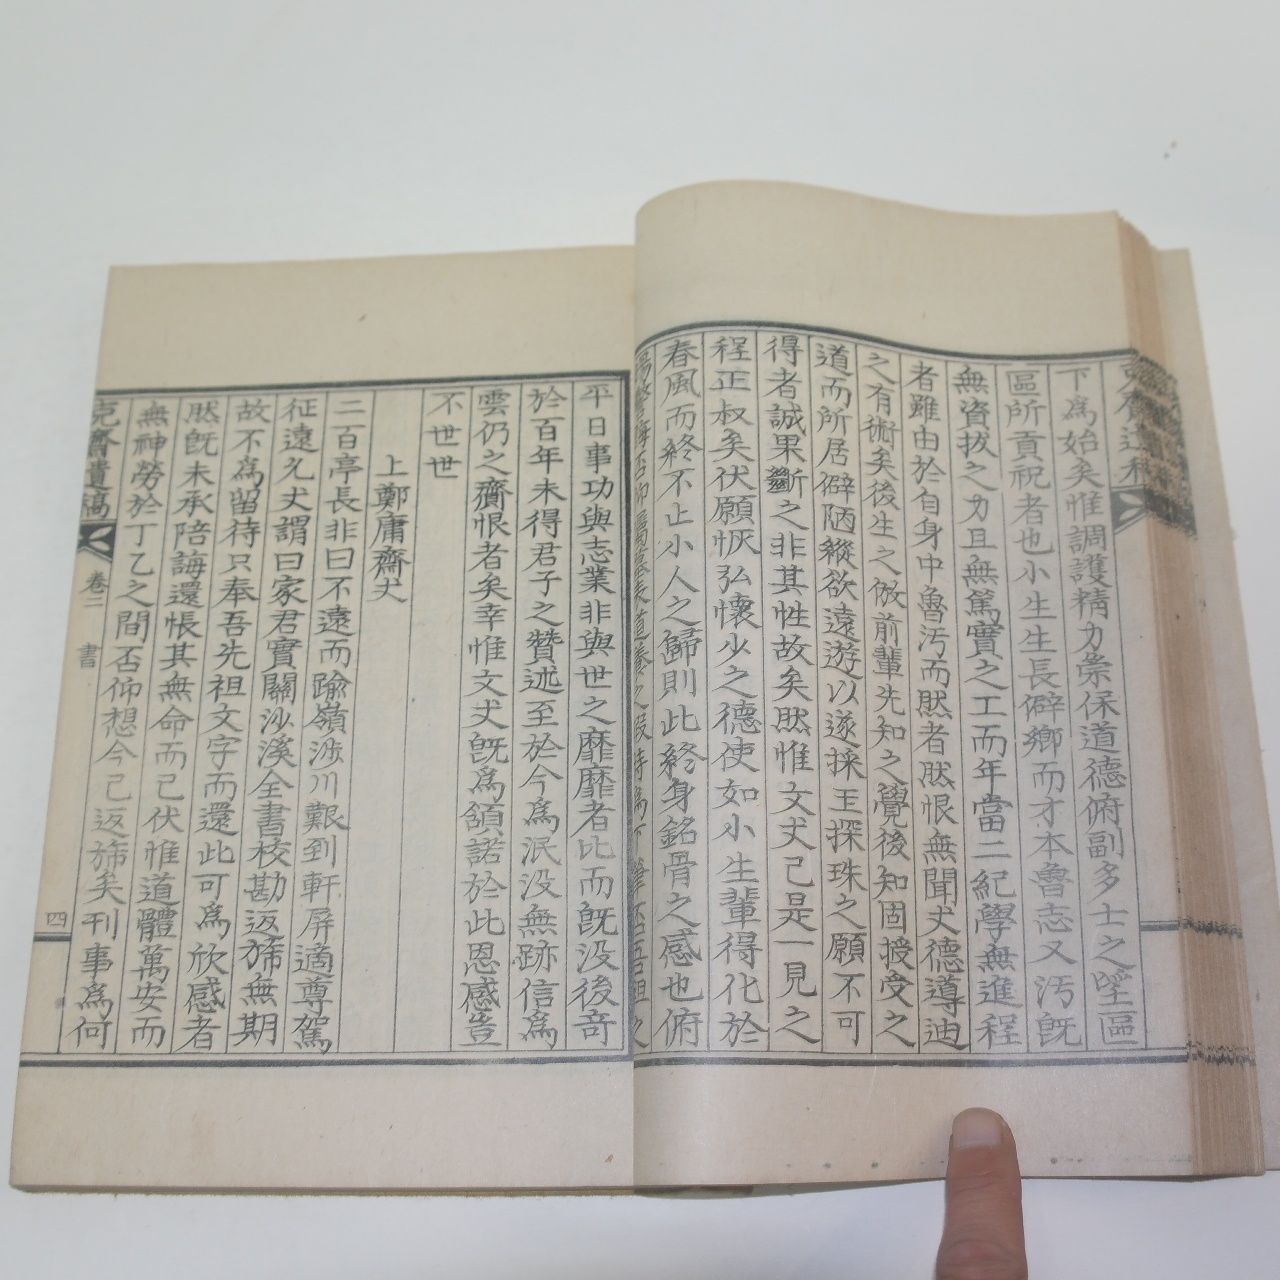 克齋遺稿
下爲始矣惟調護精力崇保道德俯副多士之望區
區所貢祝者也小生生長僻鄉而才本魯志又汚旣
無資拔之力且無篤實之工而年當二紀學無進程
者雖由於自身中魯汚而然者然恨無聞丈德導迪
之有術矣後生之倣前輩先知之覺後知固授受之
道而所居僻陋縱欲遠遊以遂採玉探珠之願不可
得者誠果斷之非其性故矣然惟文丈已是一見之
程正叔矣伏願恢弘懷少之德使如小生輩得化於
春風而終不止小人之歸則此終身銘骨之感也俯
平日事功與志業非與世之靡靡者比而旣没後奇
於百年未得君子之贊述至於今爲泯没無跡信爲
雲仍之齎恨者矣幸惟文丈旣爲頷諾於此恩感豈
不世世
上鄭庸齋丈
二百亭長非曰不遠而踰嶺涉川艱到軒屛適尊駕
征遠允丈謂曰家君實關沙溪全書校勘返旆無期
故不爲留待只奉吾先祖文字而還此可爲欣感者
然旣未承陪誨還悵其無命而已伏惟道體萬安而
無神勞於丁乙之間否仰想今已返旆矣刊事爲何
克齋遺稿
卷二
書
四